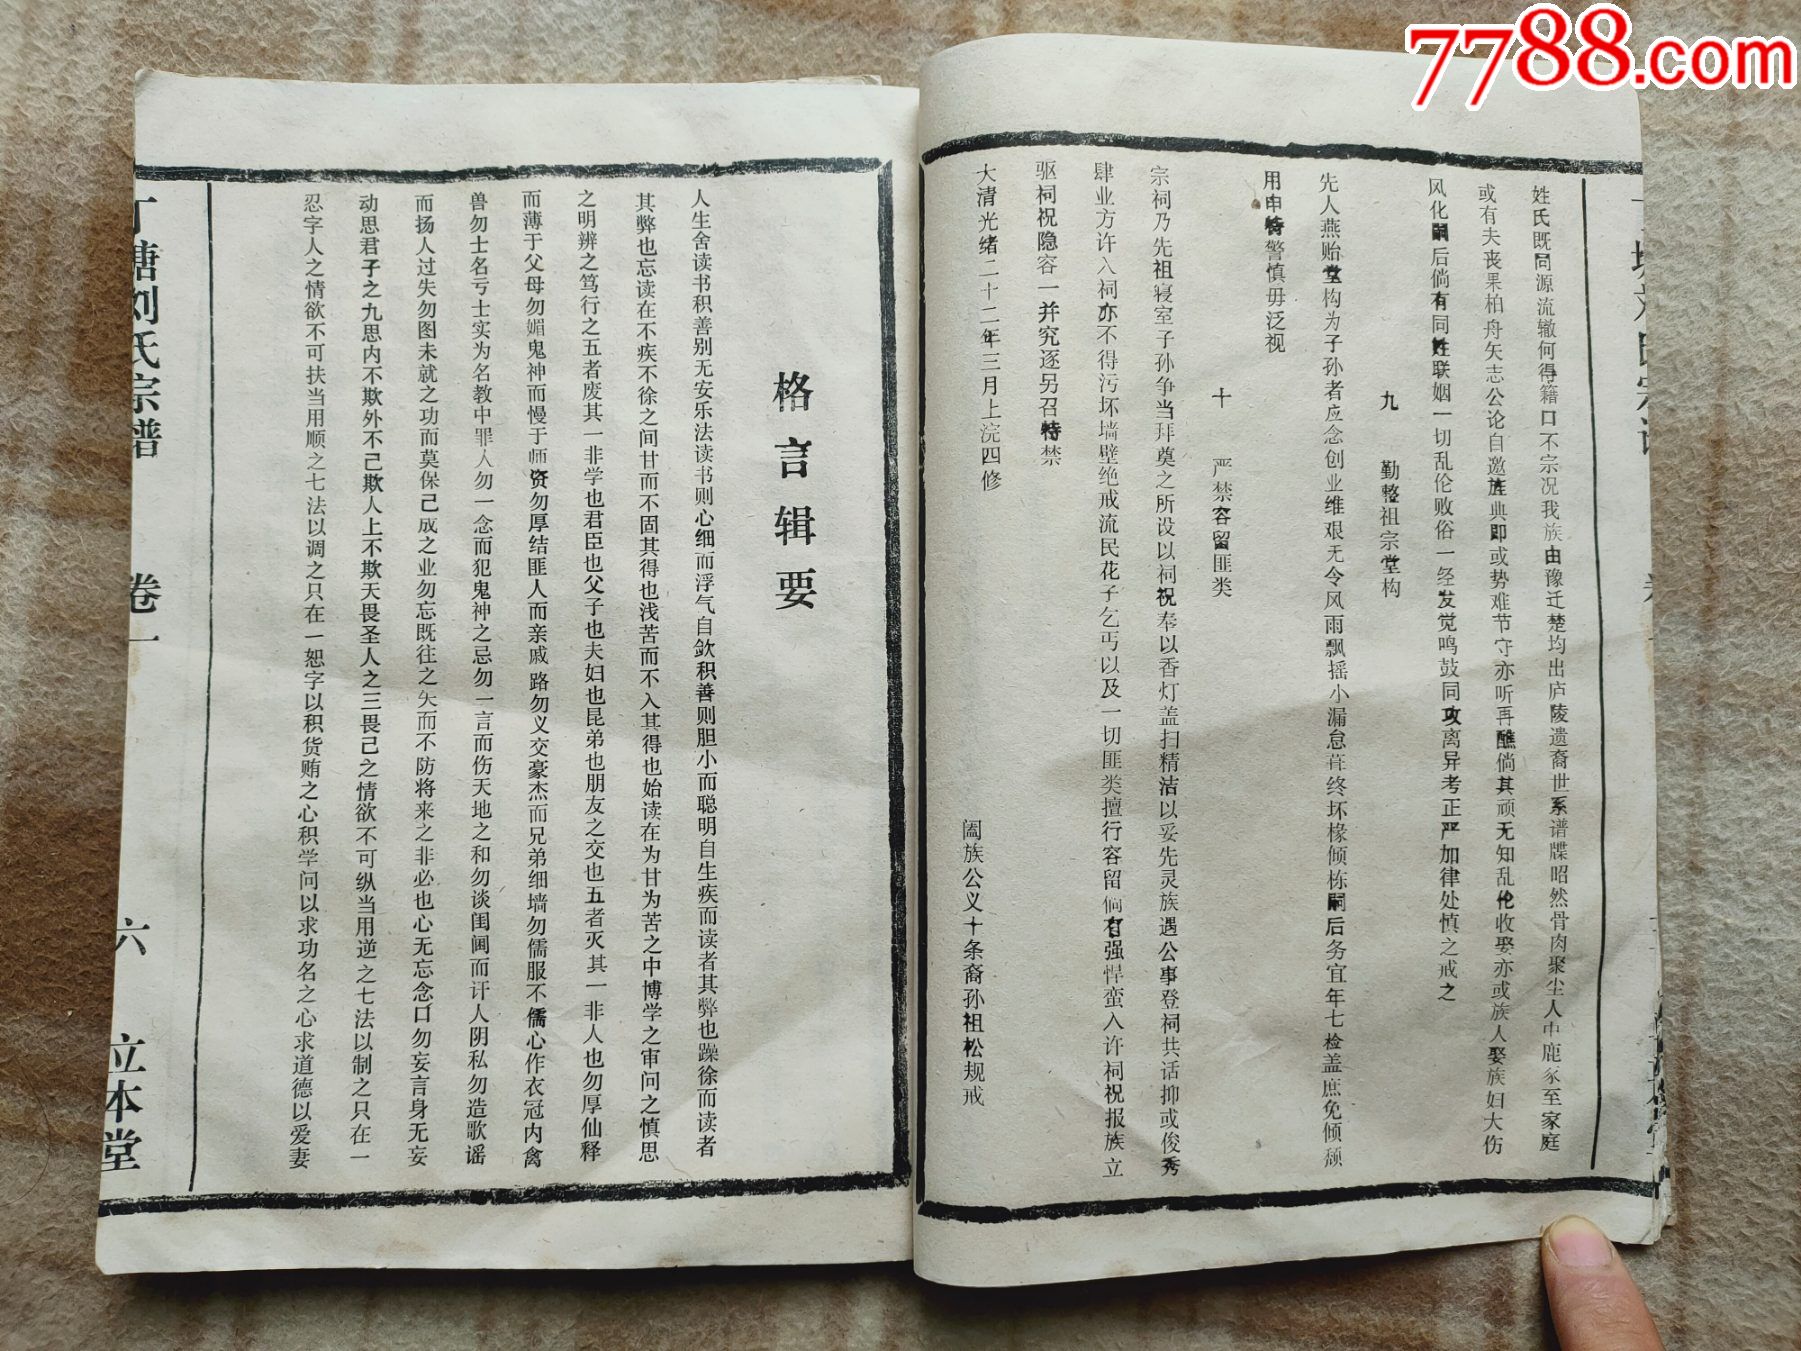 7788.com
姓氏既同源流辙何得籍口不宗况我族由豫迁楚均出庐陵遗裔世系谱牒昭然骨肉聚尘人中鹿豕至家庭
或有夫丧果柏舟矢志公论自邀旌典即或势难节守亦听再醮倘其顽无知乱伦收娶亦或族人娶族妇大伤
风化嗣后倘有同姓联姻一切乱伦败俗一经发觉鸣鼓同攻离异考正严加律处慎之戒之
九 勤整祖宗堂构
先人燕贻堂构为子孙者应念创业维艰无令风雨飘摇小漏怠葺终坏椽倾栋嗣后务宜年七检盖庶免倾颓
用申特警慎毋泛视
十 严禁容留匪类
宗祠乃先祖寝室子孙争当拜奠之所设以祠祝奉以香灯盖扫精洁以妥先灵族遇公事登祠共话抑或俊秀
肆业方许入祠亦不得污坏墙壁绝戒流民花子乞丐以及一切匪类擅行容留倘有强悍蛮入许祠祝报族立
驱祠祝隐容一并究逐另召特禁
大清光绪二十二年三月上浣四修
阖族公义十条裔孙祖松规戒
格言辑要
人生舍读书积善别无安乐法读书则心细而浮气自敛积善则胆小而聪明自生疾而读者其弊也躁徐而读者
其弊也忘读在不疾不徐之间甘而不固其得也浅苦而不入其得也始读在为甘为苦之中博学之审问之慎思
之明辨之笃行之五者废其一非学也君臣也父子也夫妇也昆弟也朋友之交也五者灭其一非人也勿厚仙释
而薄于父母勿媚鬼神而慢于师资勿厚结匪人而亲戚路勿义交豪杰而兄弟细墙勿儒服不儒心作衣冠内禽
兽勿士名亏士实为名教中罪人勿一念而犯鬼神之忌勿一言而伤天地之和勿谈闺阃而讦人阴私勿造歌谣
而扬人过失勿图未就之功而莫保己成之业勿忘既往之失而不防将来之非必也心无忘念口勿妄言身无妄
动思君子之九思内不欺外不己欺人上不欺天畏圣人之三畏己之情欲不可纵当用逆之七法以制之只在一
忍字人之情欲不可扶当用顺之七法以调之只在一恕字以积货贿之心积学问以求功名之心求道德以爱妻
丁塘刘氏宗谱 卷一 六 立本堂